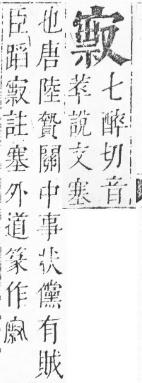 㝮七醉切音
萃說文塞
也唐陸贄關中事狀儻有賊
臣蹈㝮註塞外道篆作